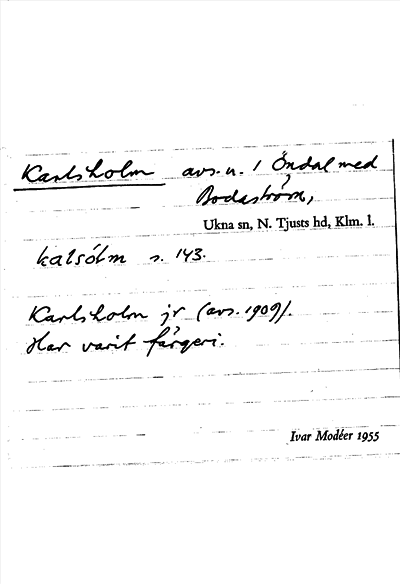 Karlsholm avs. u. / Öndal med
Bodaström,
Ukna sn, N. Tjusts hd, Klm. l.
kalsólm s. 143.
Karlsholm jr (avs. 1909).
Har varit färgeri.
Ivar Modéer 1955